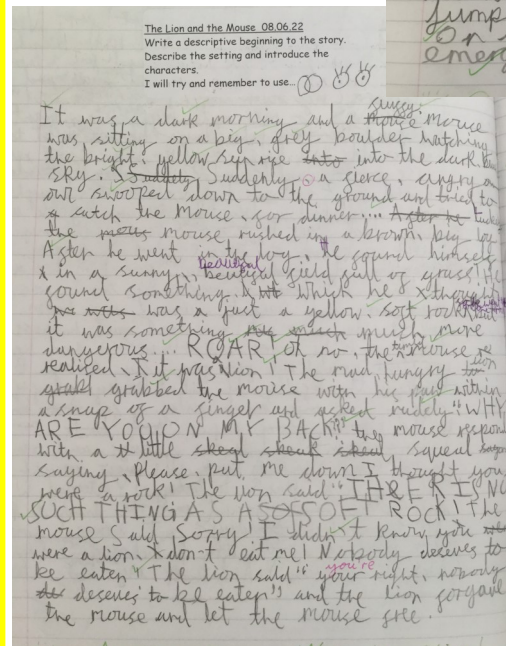 jump
on
emer
The Lion and the Mouse 08.06.22
Write a descriptive beginning to the story.
Describe the setting and introduce the
characters.
I will try and remember to use...
It was a dark morning and a mouse fussy mouse
was, sitting on a big, grey boulder watching
the bright, yellow sunrise into into the dark
sky. Suddenly Suddenly a fierce, angry
owl swooped down to the ground and tried to
catch the mouse, for dinner... After he
the mouse rushed in a brown big log
After he went in the log, he found himself
in a sunny, beautiful field full of grass! He
found something. which he thought
was a just a yellow, soft rock but
it was something much more
dangerous... ROAR! oh no, the mouse
realised, it was lion! The mad, hungry lion
grabbed the mouse with his paw within
a snap of a finger and asked rudely "WHY
ARE YOU ON MY BACK" the mouse respon
with a little squeal
saying, Please, put me down I thought you
were a rock! The lion said "THERE IS NO
SUCH THING AS A SOFT ROCK! The
mouse said Sorry! I didn't know you
were a lion. don't eat me! Nobody deserves to
be eaten" The lion said" you're right, nobody
deserves to be eaten" and the lion forgave
the mouse and let the mouse free.